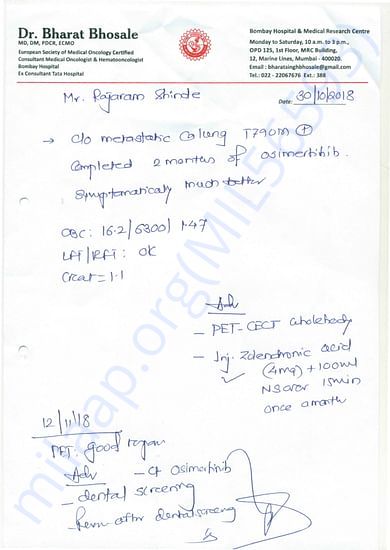 Dr. Bharat Bhosale
MD, DM, PDCR, ECMO
European Society of Medical Oncology Certified
Consultant Medical Oncologist & Hematooncologist
Bombay Hospital
Ex Consultant Tata Hospital
Bombay Hospital & Medical Research Centre
Monday to Saturday, 10 a.m. to 3 p.m.,
OPD 125, 1st Floor, MRC Building,
12, Marine Lines, Mumbai - 400020.
Email : bharatsinghbhosale@gmail.com
Tel.: 022 - 22067676 Ext.: 388
Mr. Rajaram Shinde
Date: 30/10/2018
→ c/o metastatic Ca lung T790M +
Completed 2 months of osimertinib.
Symptomatically much better
CBC: 16.2/6300/1.47
LFT/RFT: OK
Creat = 1.1
Adv
- PET-CECT wholebody
- Inj. Zolendronic acid
(4mg) + 100ml
NS over 15min
once a month
12/11/18
PET: good
Adv
- Ct Osimertinib
- dental screening
after dental screening
milaap.org(MIL565